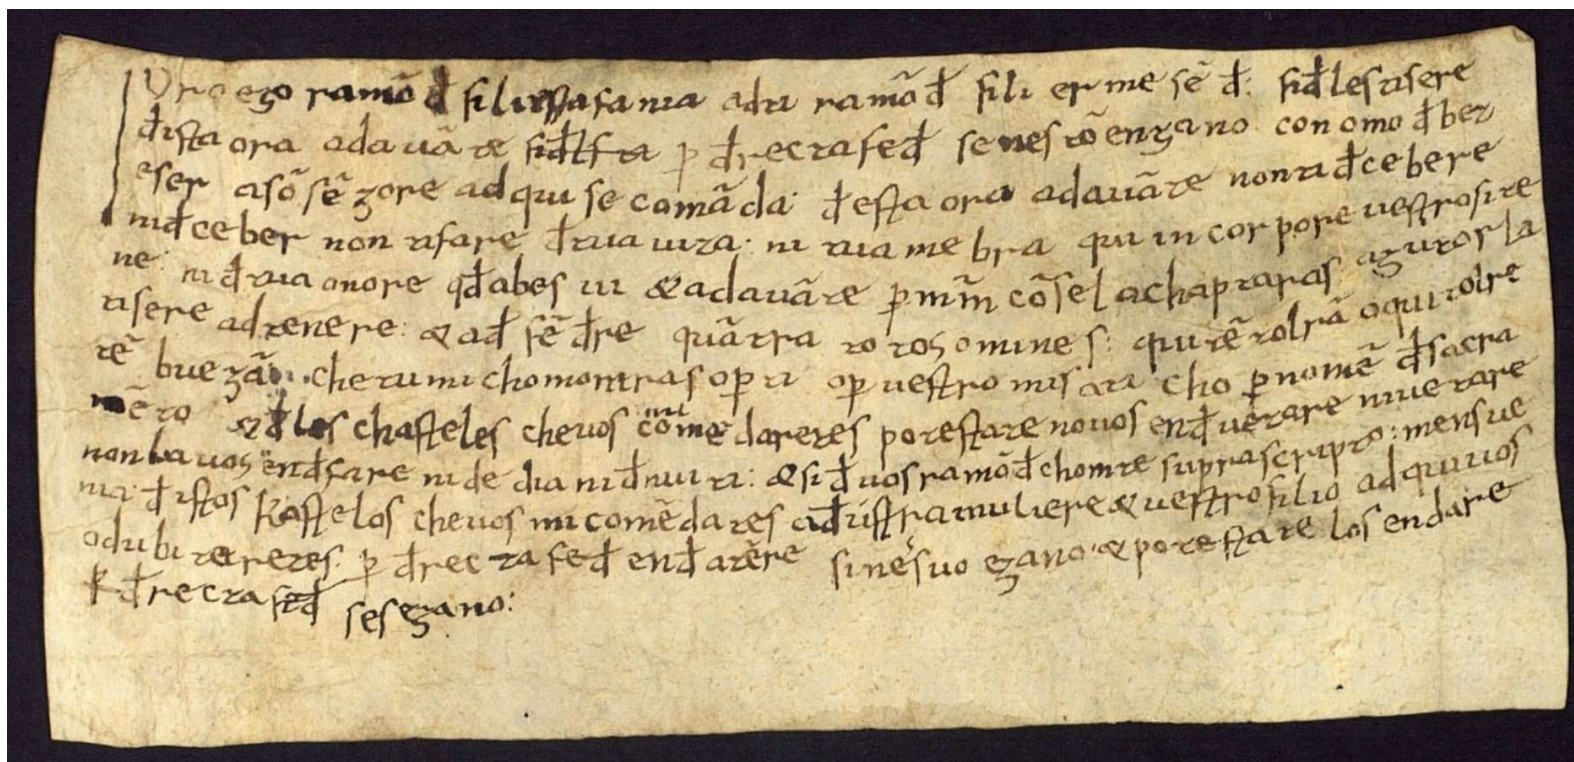 Iuro ego ramõ đ filiestefania a đti ramõ đ fili ermesẽ đ: fiđles tisere
đista ora adavãte fiđl p đrecta feđ se nes tõ engano con omo đber
eser a sõ sẽgore ad qui se comãda: đ esta ora adavãte non ti đcebere
ni đceber non ti fare đ tua vita: ni tua mebra qui in corpore vestro si te
ne: ni đ tua onore qđ abes ui & adavãte p mm̃ cõsel achaptaras aguros la
tisere ad tenere: & a đ fẽ đre quãtra totos omines: qui tẽ tolrã o qui tolre
tẽ che tu mi chomontras o p ti o p vestro misati cho p nomẽ đ sacra
mẽto los chasteles che vos comẽ dare tes potestare no vos en đ vetare ni vetare
non la vos en đ fare ni de dia ni đ nuiti: & si đ vos ramõ đ chomte suprascripto: mens ve
nia: đ istos kastelos che vos mi comẽdares a đ vistra muliere & vestro filio ad qui vos
o dubitetetes: p đrecta feđ en đ atẽre sines uo egano: & potestare los en dare
p đrecta feđ ses egano: